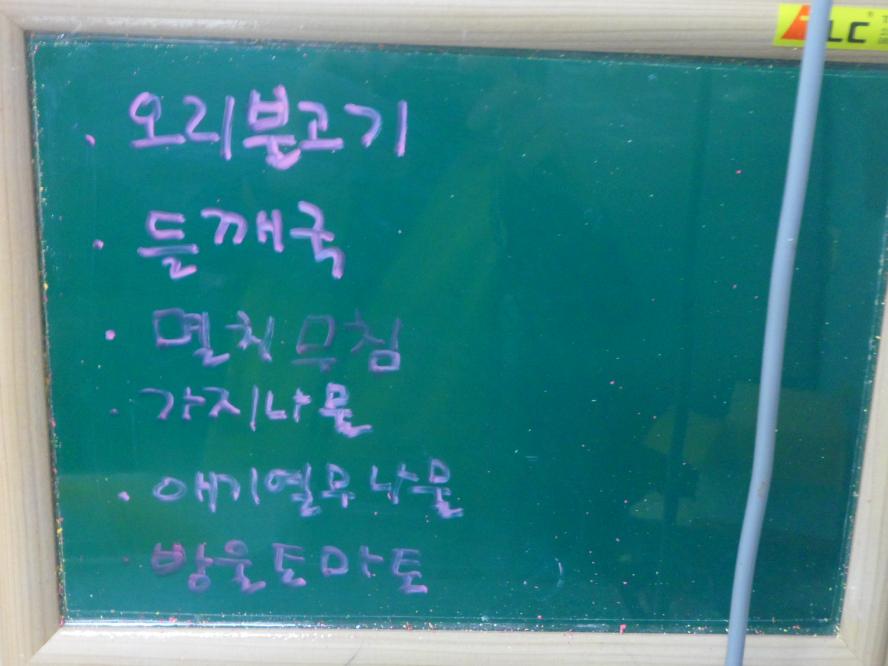 · 오리불고기
· 들깨국
· 멸치무침
· 가지나물
· 애기열무나물
· 방울토마토
LC